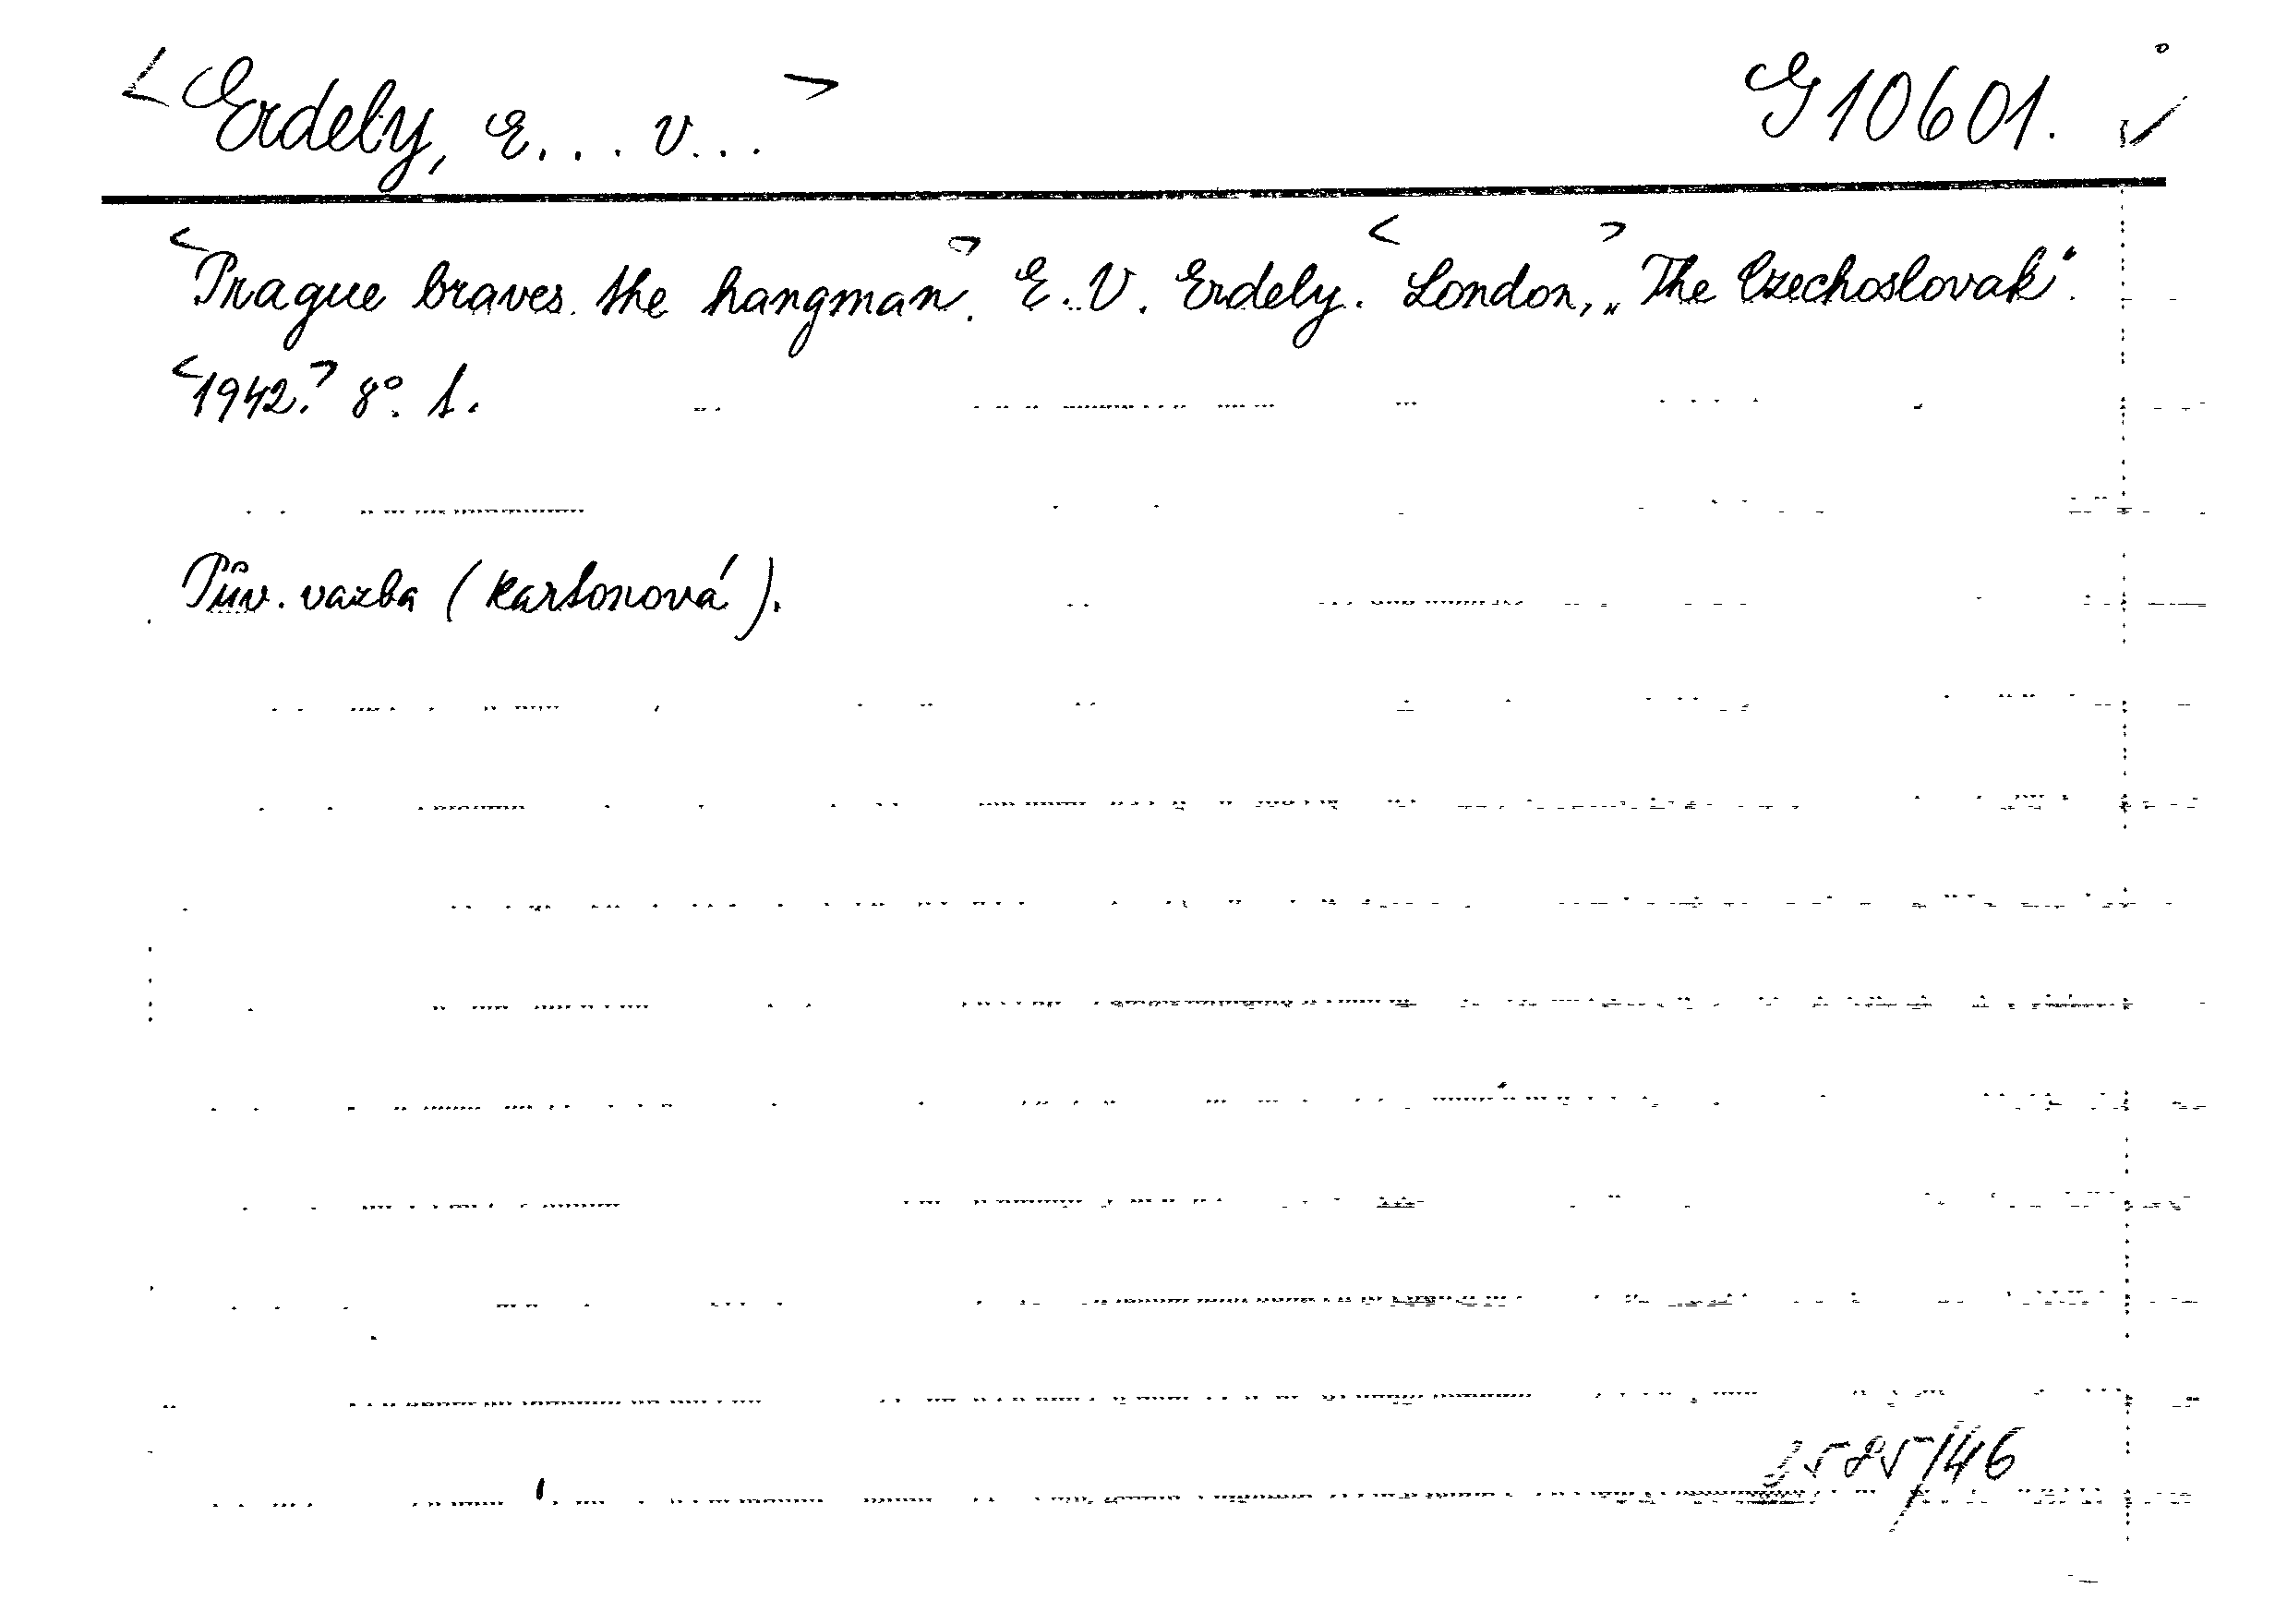 <Erdely, E... V...> G 10601. ✓
<Prague braves the hangman.> E. V. Erdely. <London,> „The Czechoslovak“.
<1942.> 8°. 1.
Pův. vazba (kartonová).
3585/46